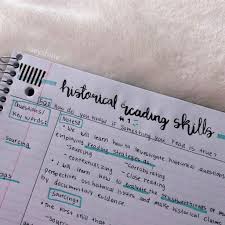 historical reading skills
#1
EQ: how do you know if something you read is true?
Questions/
Key words:
Notes:
• We will learn how to investigate historical questions
employing reading strategies
- Sourcing
- corroborating
- contextualizing
- Close reading
• We will learn how to evaluate the trustworthiness of
perspectives
by documentary evidence. and make historical claims
Sourcing
Sourcing:
• the first skill that